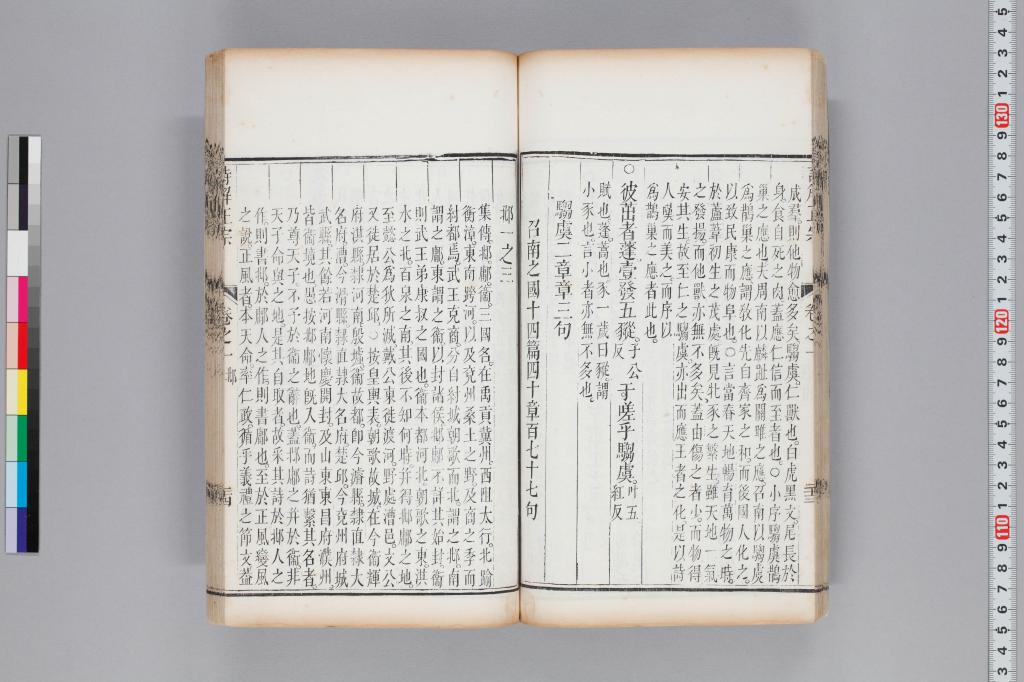 成羣則他物愈多矣騶虞仁獸也白虎黑文尾長於
身食自死之肉蓋應仁信而至者也○小序騶虞鵲
巢之應也夫周南以麟趾爲關雎之應召南以騶虞
爲鵲巢之應謂敎化先自齊家之和而後國人化之
以致民康而物阜也○言當春天地暢育萬物之時
於蓋葭初生之茂處旣見牝豕之繁生雖天地一氣
之發揚而他獸亦無不多矣蓋由傷之者少而物得
安其生故至仁之騶虞亦出而應王者之化是以詩
人嘆而美之而序以
爲鵲巢之應者此也
○彼茁者蓬壹發五豵子公反于嗟乎騶虞叶五紅反
賦也蓬蒿也豕一歲曰豵謂
小豕也言小者亦無不多也
騶虞二章章三句
召南之國十四篇四十章百七十七句
邶一之三
集傳邶鄘衞三國名在禹貢冀州西阻太行北踰
衡漳東南跨河以及兗州桑土之野及商之季而
紂都焉武王克商分自紂城朝歌而北謂之邶南
謂之鄘東謂之衞以封諸侯邶鄘不詳其始封衞
則武王弟康叔之國也衞本都河北朝歌之東淇
水之北百泉之南其後不知何時并得邶鄘之地
至懿公爲狄所滅戴公東徙渡河野處漕邑文公
又徙居於楚邱○按皇輿表朝歌故城在今衞輝
府淇縣隷河南殷墟衞故都卽今濬縣隷直隷大
名府漕今滑縣隷直隷大名府楚邱今兗州府城
武縣其餘若河南懷慶開封及山東東昌府濮州
皆衞境也愚按邶鄘地旣入衞而詩猶繫其名者
乃尊天子不予於衞之辭也蓋邶鄘之并於衞非
天子命與之地是其自取者故采其詩於邶人之
作則書邶於鄘人之作則書鄘也至於正風變風
之說正風者本天命率仁政循乎義禮之節文益
詩解正宗
卷之一 邶